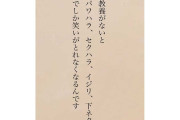 教養がないと
パワハラ、セクハラ、イジリ、下ネタ
でしか笑いがとれなくなるんです